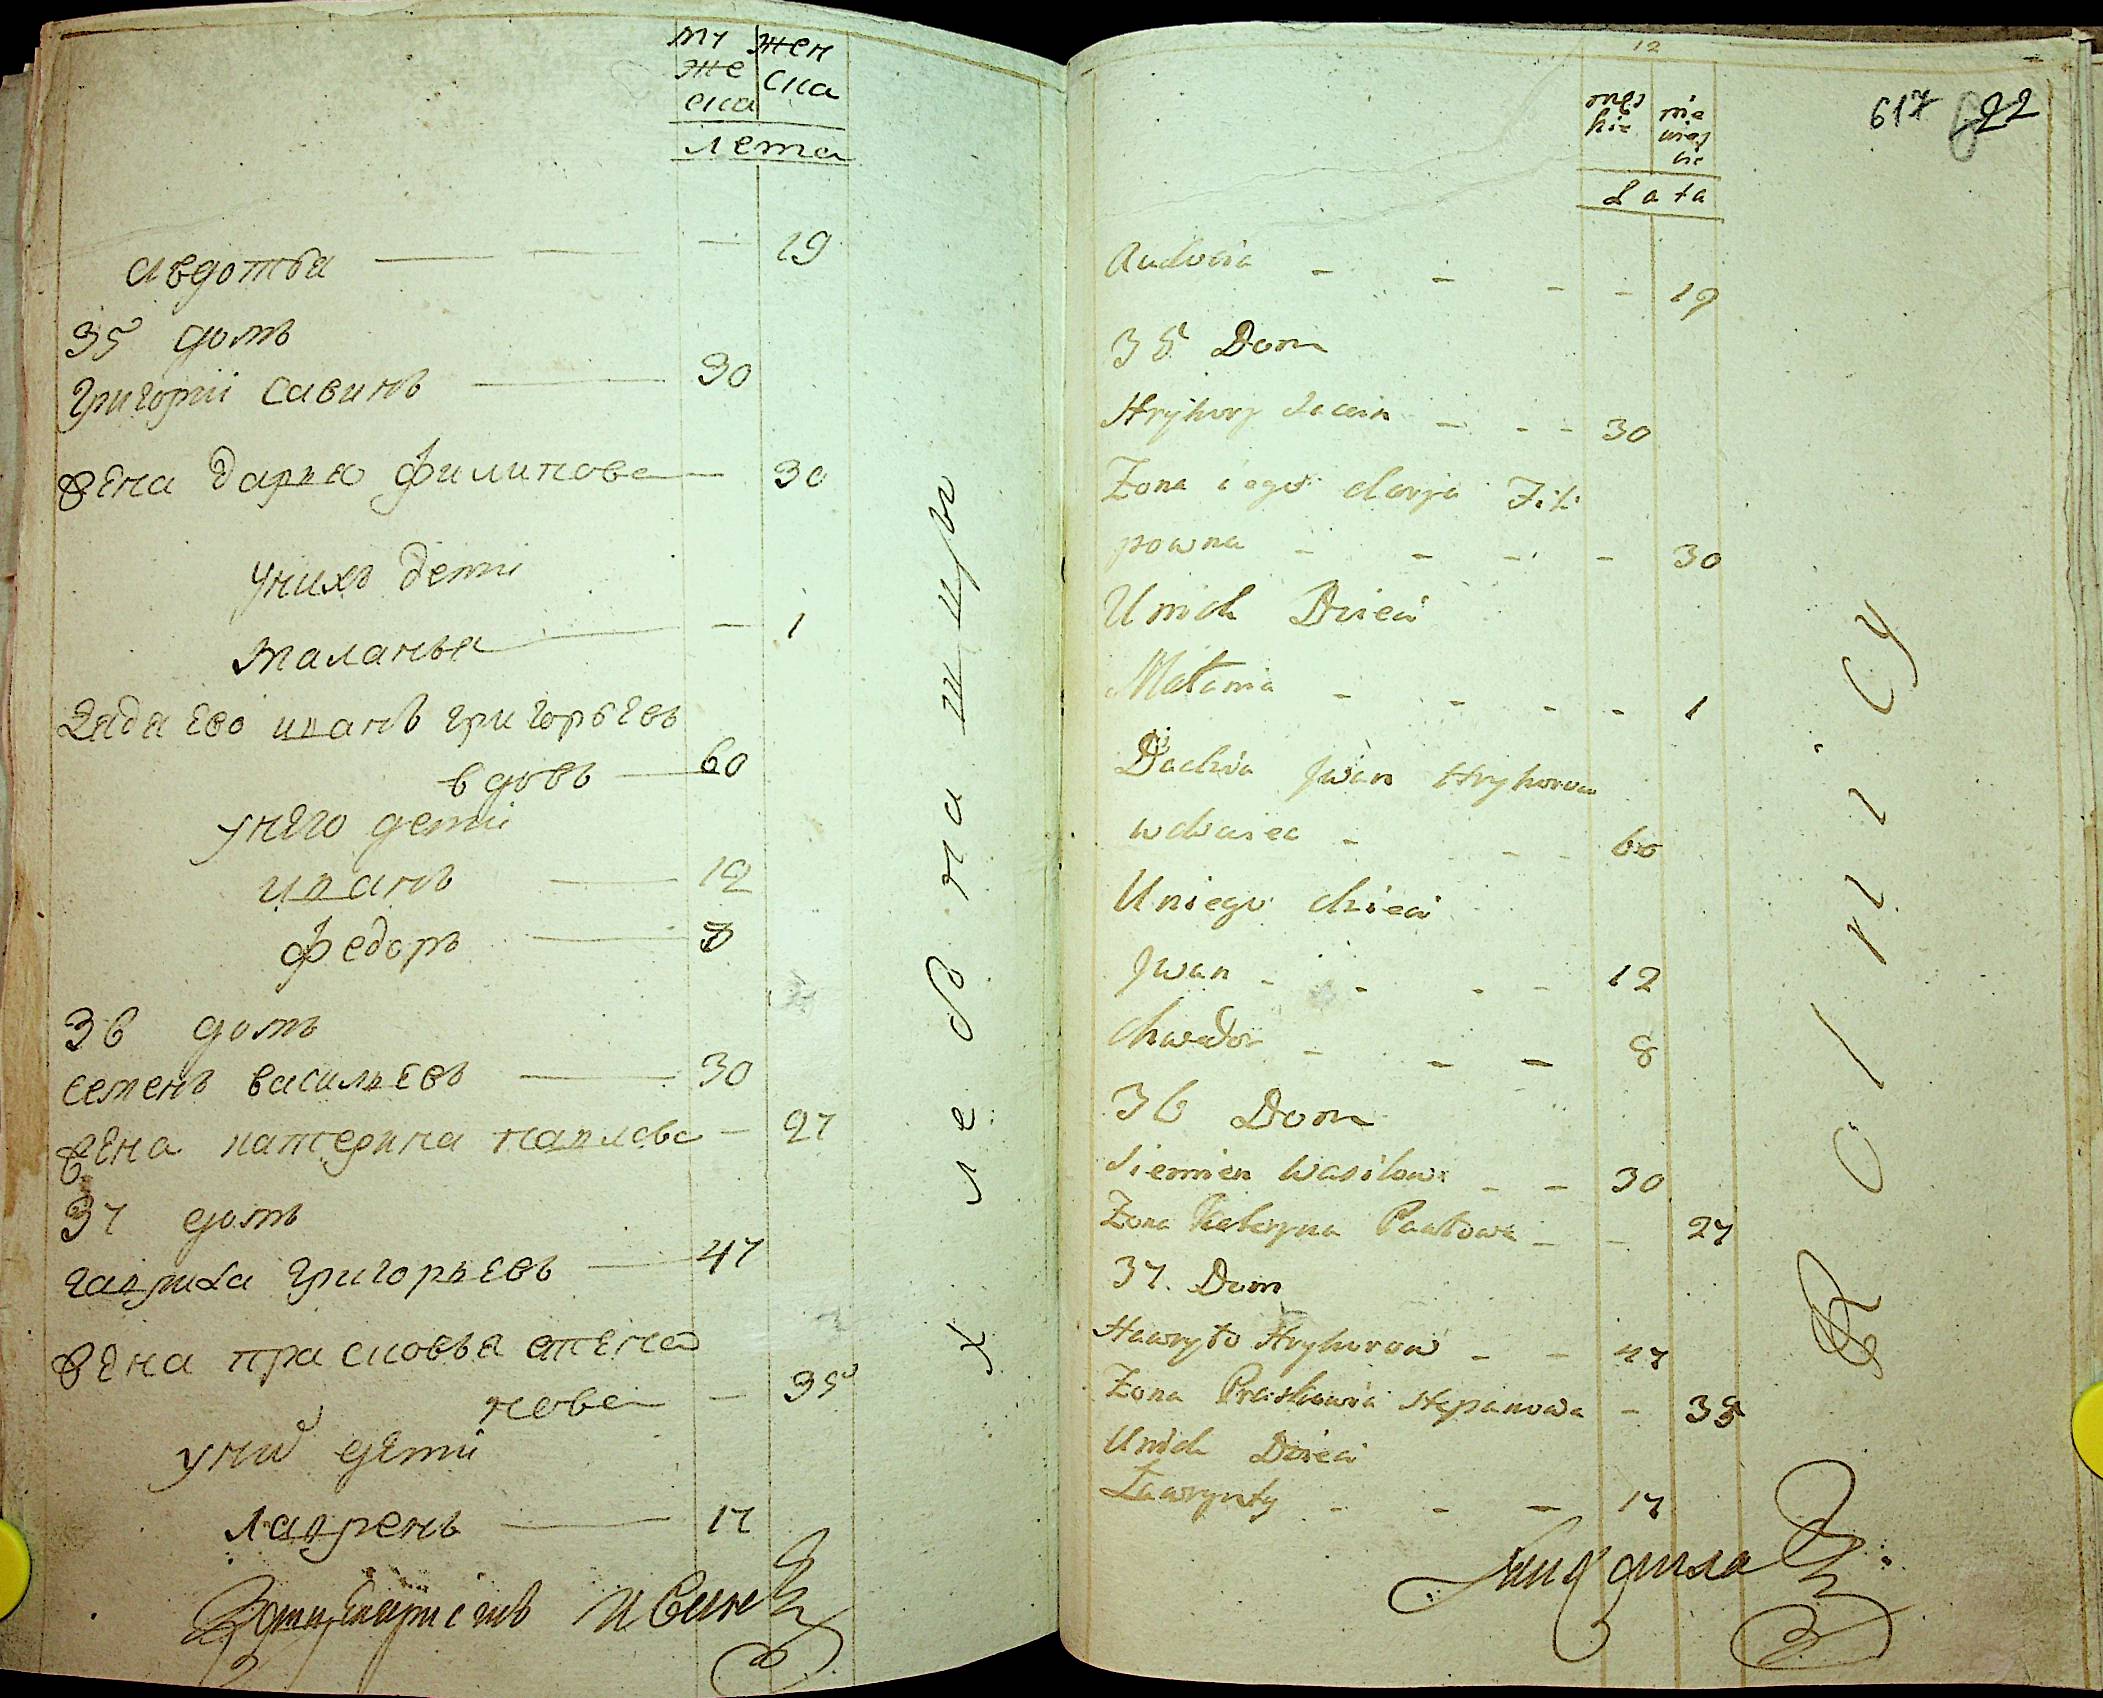 му
же
ска
жен
ска
лета
авдотьа — — — 19
35 домъ
Григорій Савинъ — 30
жена дарья филипова — 30
унихъ деті
маланья — — 1
дядя ево иванъ григорьевъ
вдовъ — 60
унего деті
иванъ — 12
федоръ — 8
36 домъ
семенъ васильевъ — 30
жена катерина павлова — 27
37 домъ
гаврила григорьевъ — 47
жена прасковья степа
нова — 35
уних деті
лаврень — 17
хлебпашцы
12
617
męs
kie
nie
wies
cie
Lata
Audocia - - - - 19
35 Dom
Hryhory Sawin - - - 30
Zona iego darja Fili
powna - - - - 30
Unich Dzieci
Małania - - - - 1
Dadzia Jwan Hryhorow
wdowiec - - - 60
Uniego dzieci
Jwan - - - - 12
Chwedor - - - 8
36 Dom
Siemien Wasilow - - 30
Zona Kateryna Pawłowa - - 27
37. Dom
Hawryło Hryhorow - - 47
Zona Praskowia Stepanowa - 35
Unich Dzieci
Ławrynty - - - 17
Rolnicy